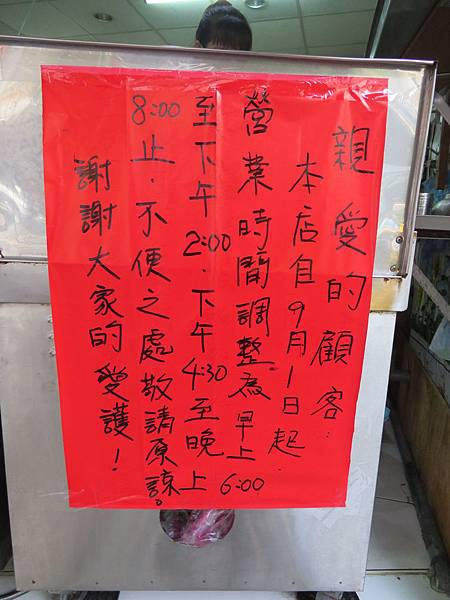 親愛的顧客：
本店自9月1日起．
營業時間調整為早上6:00
至下午2:00．下午4:30至晚上
8:00止．不便之處敬請原諒。
謝謝大家的愛護！